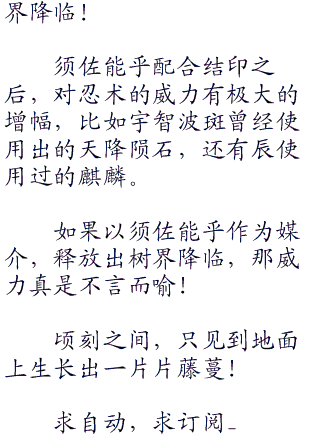 界降临！
须佐能乎配合结印之
后，对忍术的威力有极大的
增幅，比如宇智波斑曾经使
用出的天降陨石，还有辰使
用过的麒麟。
如果以须佐能乎作为媒
介，释放出树界降临，那威
力真是不言而喻！
顷刻之间，只见到地面
上生长出一片片藤蔓！
求自动，求订阅_